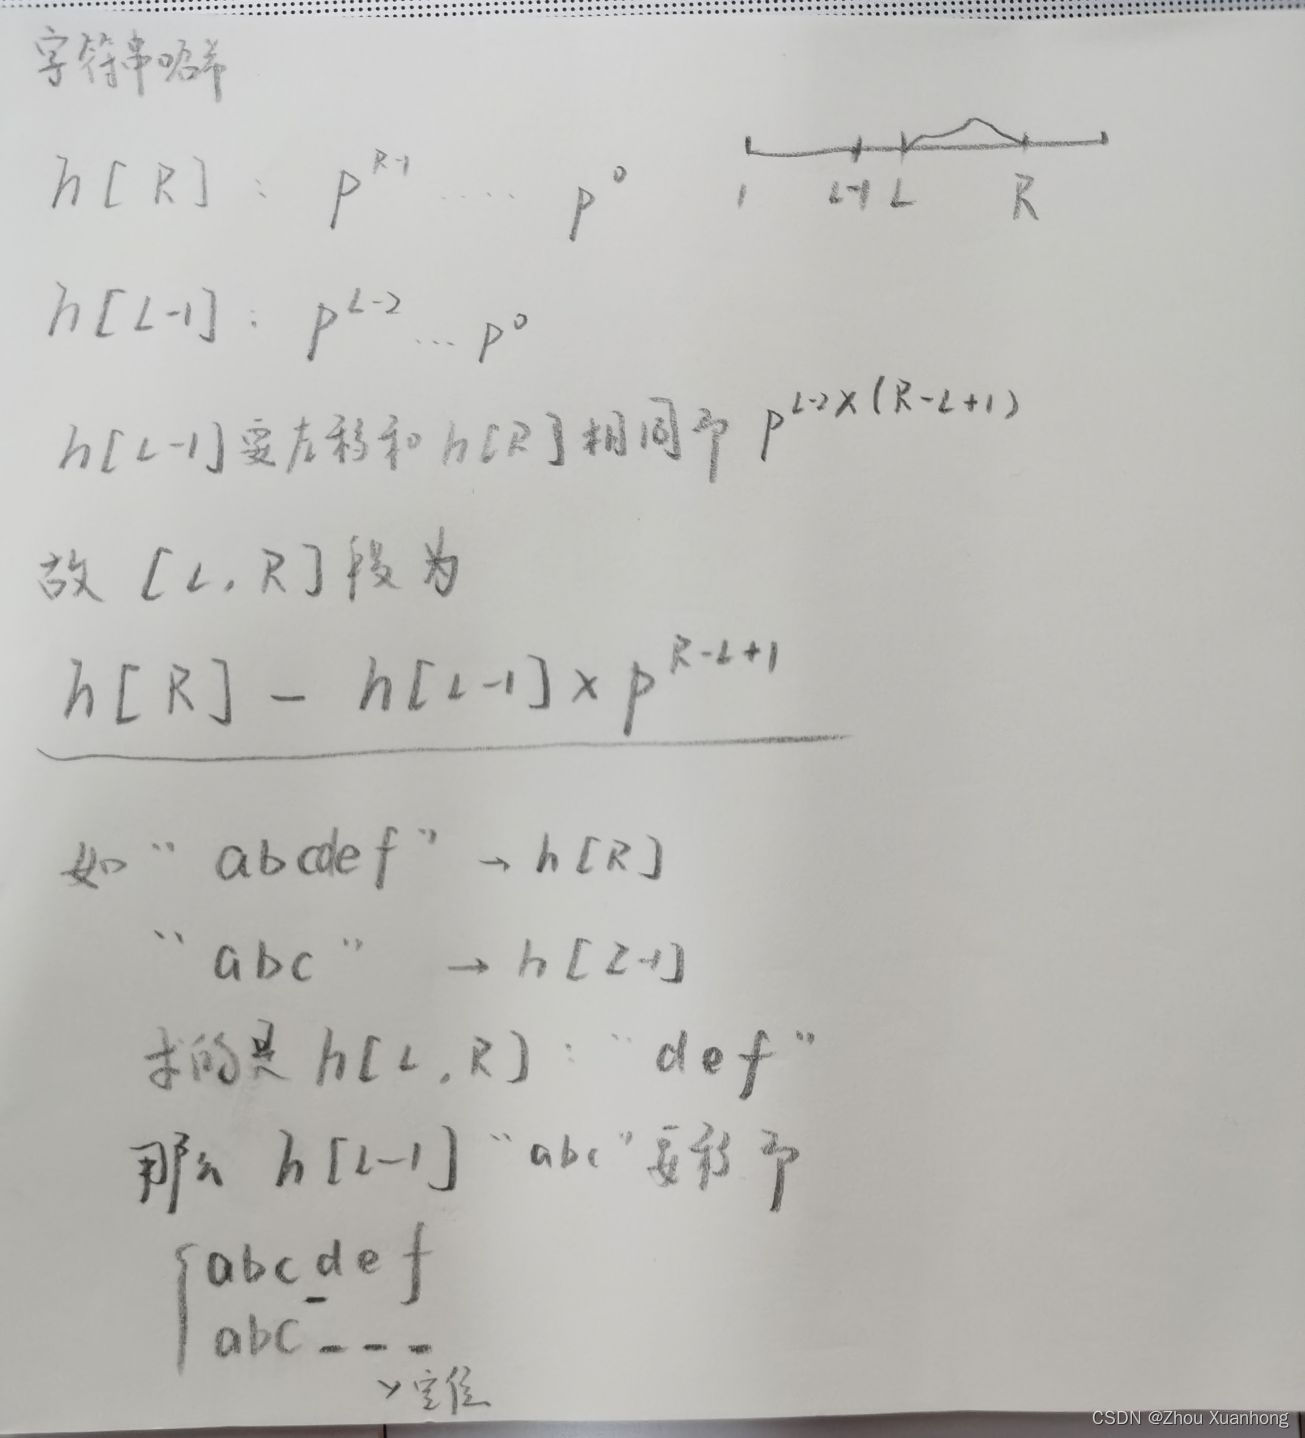 字符串哈希
h[R]: p^{R-1} ..... p^0
1 L-1 L R
h[L-1]: p^{L-2} ... p^0
h[L-1]要左移和h[R]相同即 p^{L-2×(R-L+1)}
故 [L, R]段为
h[R] - h[L-1]×p^{R-L+1}
如 "abcdef" → h[R]
"abc" → h[L-1]
求的是 h[L, R]: "def"
那么 h[L-1] "abc"要移即
{abcdef
abc---
空位
CSDN @Zhou Xuanhong